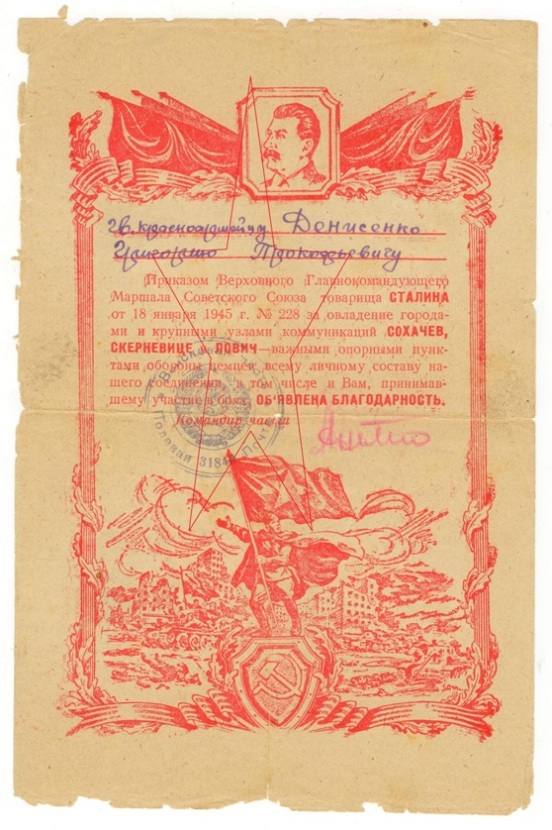 гв. красноармейцу Денисенко
Григорию Прокофьевичу
Приказом Верховного Главнокомандующего
Маршала Советского Союза товарища СТАЛИНА
от 18 января 1945 г. № 228 за овладение города-
ми и крупными узлами коммуникаций СОХАЧЕВ,
СКЕРНЕВИЦЕ и ЛОВИЧ—важными опорными пунк-
тами обороны немцев, всему личному составу на-
шего соединения, в том числе и Вам, принимав-
шему участие в боях, ОБ'ЯВЛЕНА БЛАГОДАРНОСТЬ.
Командир части
Полевая Почта